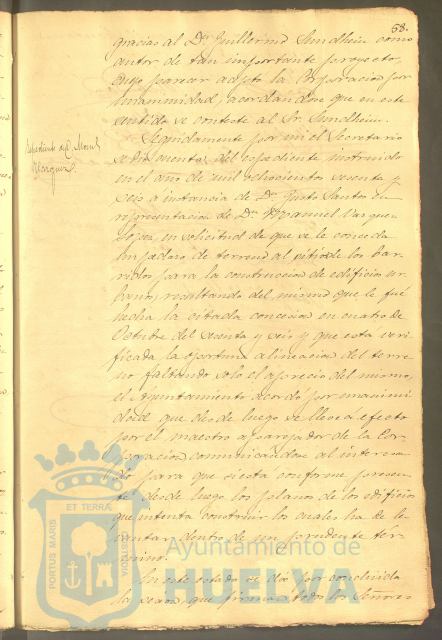 58.
gracias al Dn. Guillermo Sundheim como
autor de tan importante proyecto,
cuyo parecer adoptó la Corporacion por
unanimidad, acordandose que en este
sentido se conteste al Sr. Sundheim.
Seguidamente por mi el Secretario
se dió cuenta del espediente instruido
en el año de mil ochocientos sesenta y
seis á instancia de Dn. Justo Santos en
representacion de Dn. Manuel Vazquez
Lopez, en solicitud de que se le conceda
un pedazo de terreno al sitio de los bar
rios para la construccion de edificio ur
bano, resultando del mismo que le fué
hecha la citada concesion en cuatro de
Octubre del sesenta y seis y que esta veri
ficada la oportuna alineacion del terre
no faltando solo el aprecio del mismo,
el Ayuntamiento acordó por unanimi
dad que desde luego se lleve á efecto
por el maestro aparejador de la Cor
poracion comunicandose al interesa
do para que si esta conforme presen
te desde luego los planos de los edificios
que intenta construir los cuales ha de le
vantar dentro de un prudente tér
mino.
En este estado se dió por concluida
la sesion que firman todos los Señores
Espediente de D. Manl.
Vazquez.
PORTUS MARIS ET TERRAE CUSTODIA
Ayuntamiento de
HUELVA